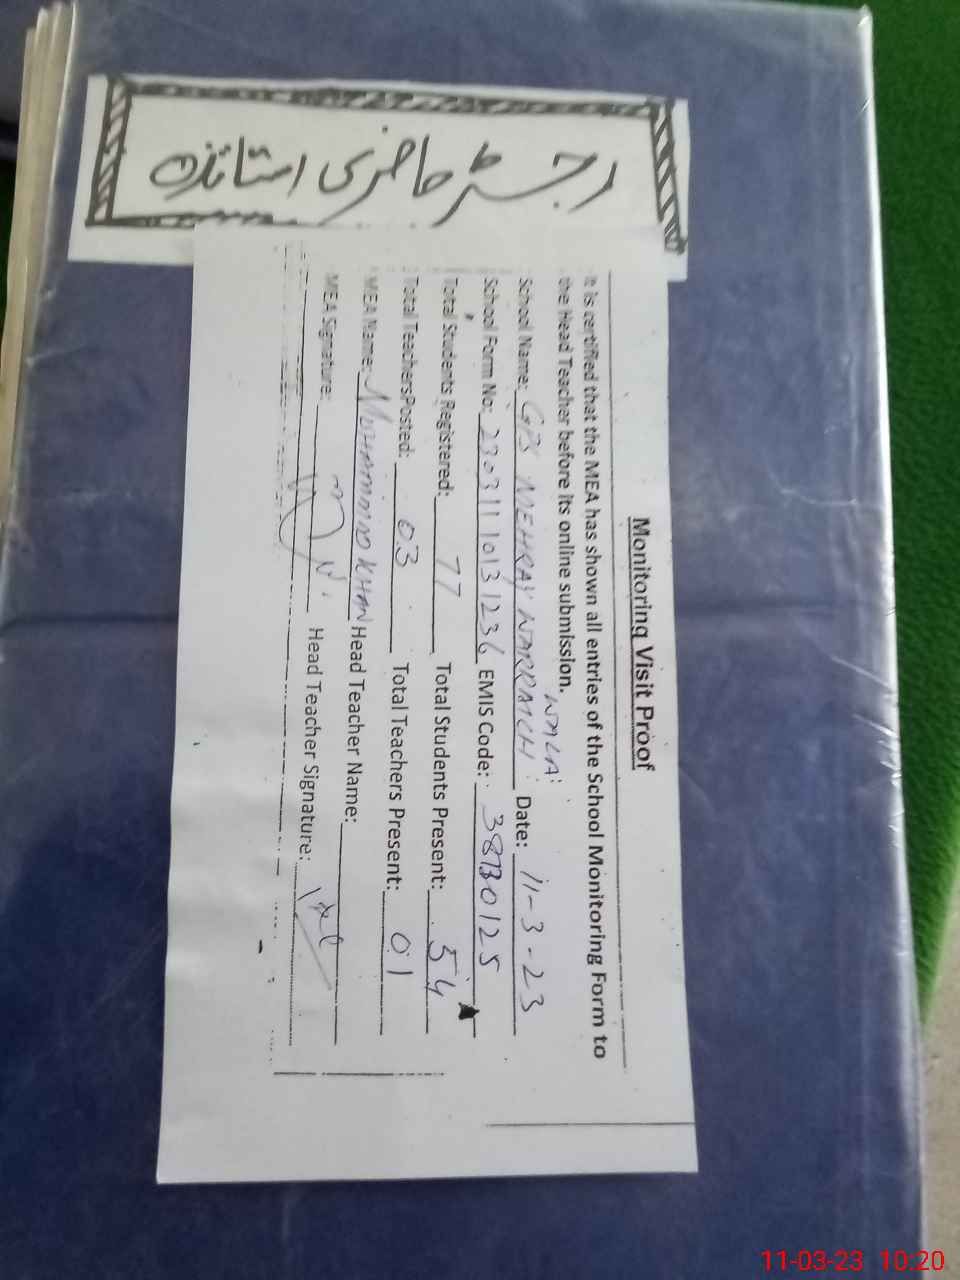 رجسٹر حاضری اساتذہ
Monitoring Visit Proof
It is certified that the MEA has shown all entries of the School Monitoring Form to
the Head Teacher before its online submission.
WALA:
School Name: GPS MEHRAY WARRAICH Date: 11-3-23
School Form No: 2303111013 1236 EMIS Code: 38130125
Total Students Registered: 77 Total Students Present: 54
Total TeachersPosted: 03 Total Teachers Present: 01
MEA Name: MUHAMMAD KHAN Head Teacher Name:
MEA Signature: Head Teacher Signature:
11-03-23 10:20